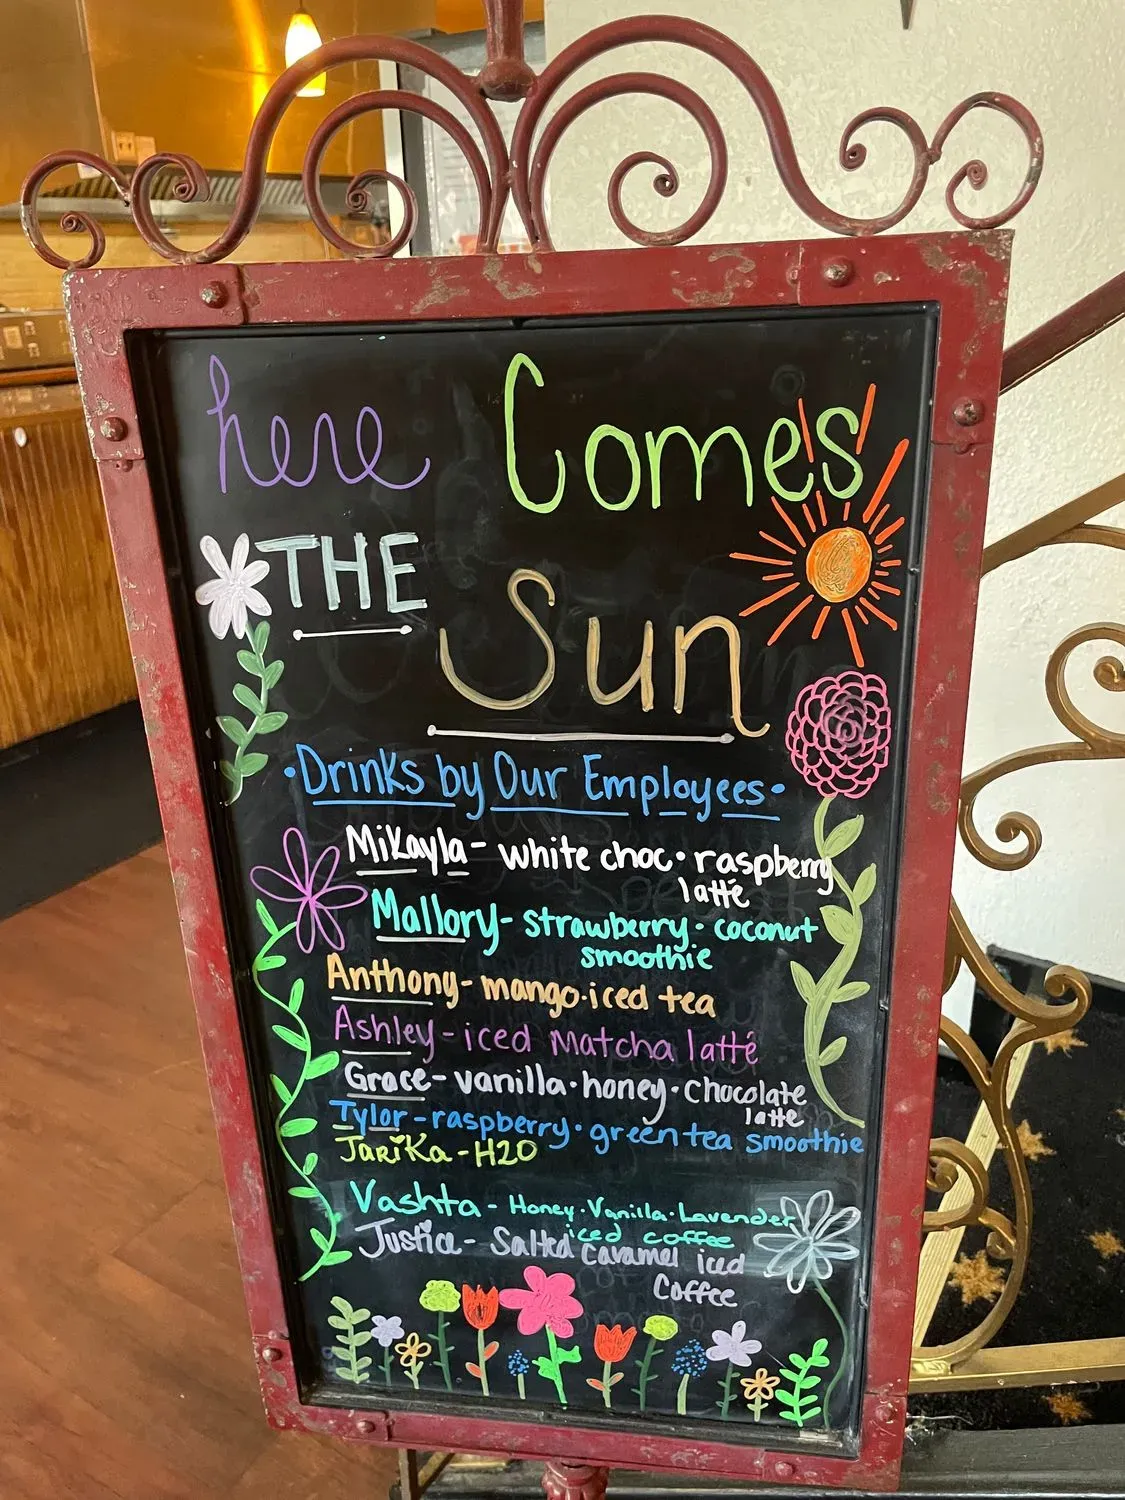 here Comes
THE
Sun
·Drinks by Our Employees·
Mikayla - white choc · raspberry
latté
Mallory - strawberry · coconut
smoothie
Anthony - mango · iced tea
Ashley - iced Matcha latté
Grace - vanilla · honey · chocolate
latte
Tylor - raspberry · green tea smoothie
JariKa - H20
Vashta - Honey · Vanilla · Lavender
iced coffee
Justice - Salted Caramel iced
Coffee